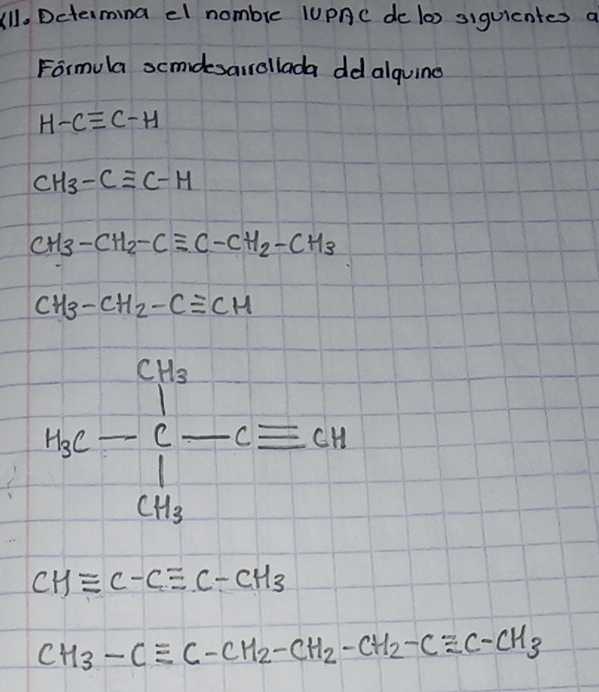 XII. Determina el nombre IUPAC de los siguientes a
Fórmula semidesarrollada del alquino
H-C≡C-H
CH3-C≡C-H
CH3-CH2-C≡C-CH2-CH3
CH3-CH2-C≡CH
CH3
|
H3C — C — C≡CH
|
CH3
CH≡C-C≡C-CH3
CH3-C≡C-CH2-CH2-CH2-C≡C-CH3